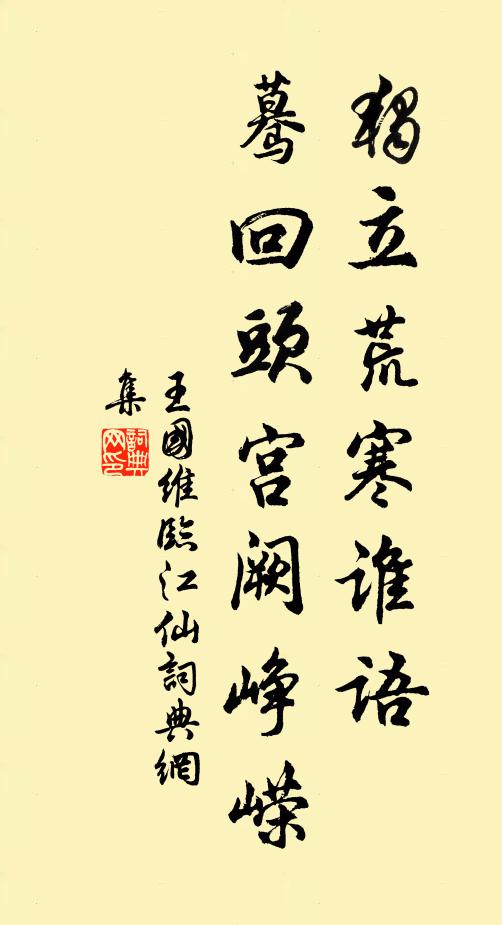 獨立荒寒誰語
驀回頭宮闕崢嶸
王國維臨江仙詞典網
集
詞典网印